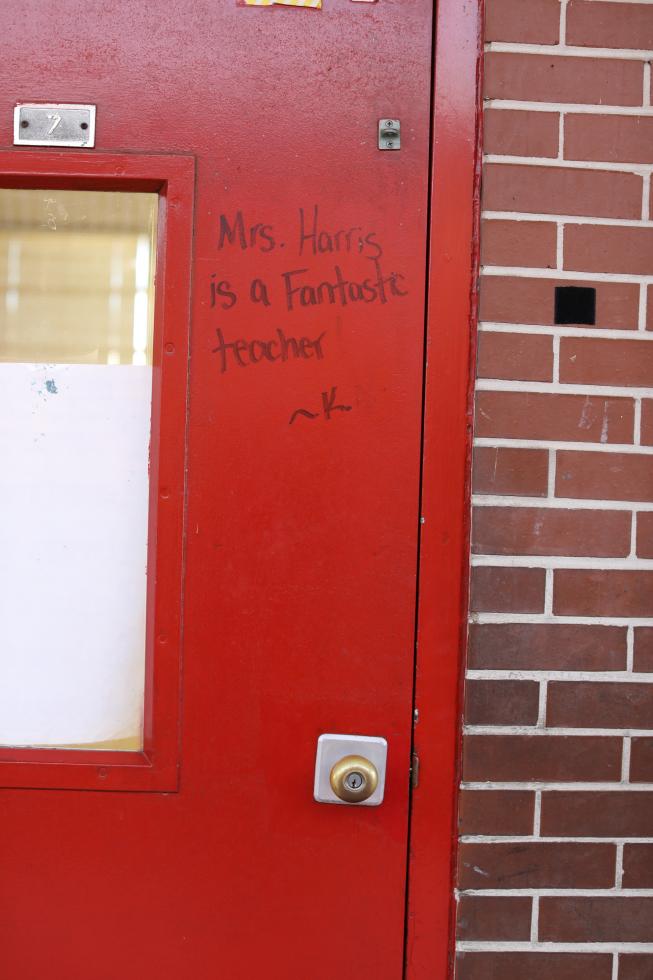 7
Mrs. Harris
is a Fantastic
teacher
~K~